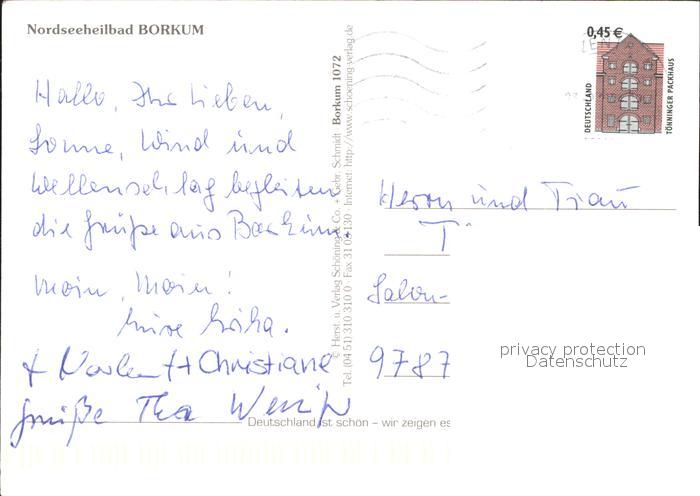 Nordseeheilbad BORKUM
Hallo, Ihr Lieben,
Sonne, Wind und
Wellenschlag begleiten
die Grüße aus Borkum.
Moin, Moin!
Eure
+ Christiane
Grüße
© Herst. u. Verlag Schöning & Co. + Gebr. Schmidt Borkum 1072
Tel. (04 51) 310 310 0 · Fax 31 03 130 · Internet: http://www.schoening-verlag.de
Deutschland ist schön – wir zeigen es
0,45 €
DEUTSCHLAND
TÖNNINGER PACKHAUS
Herrn und Frau
T
9787
privacy protection
Datenschutz